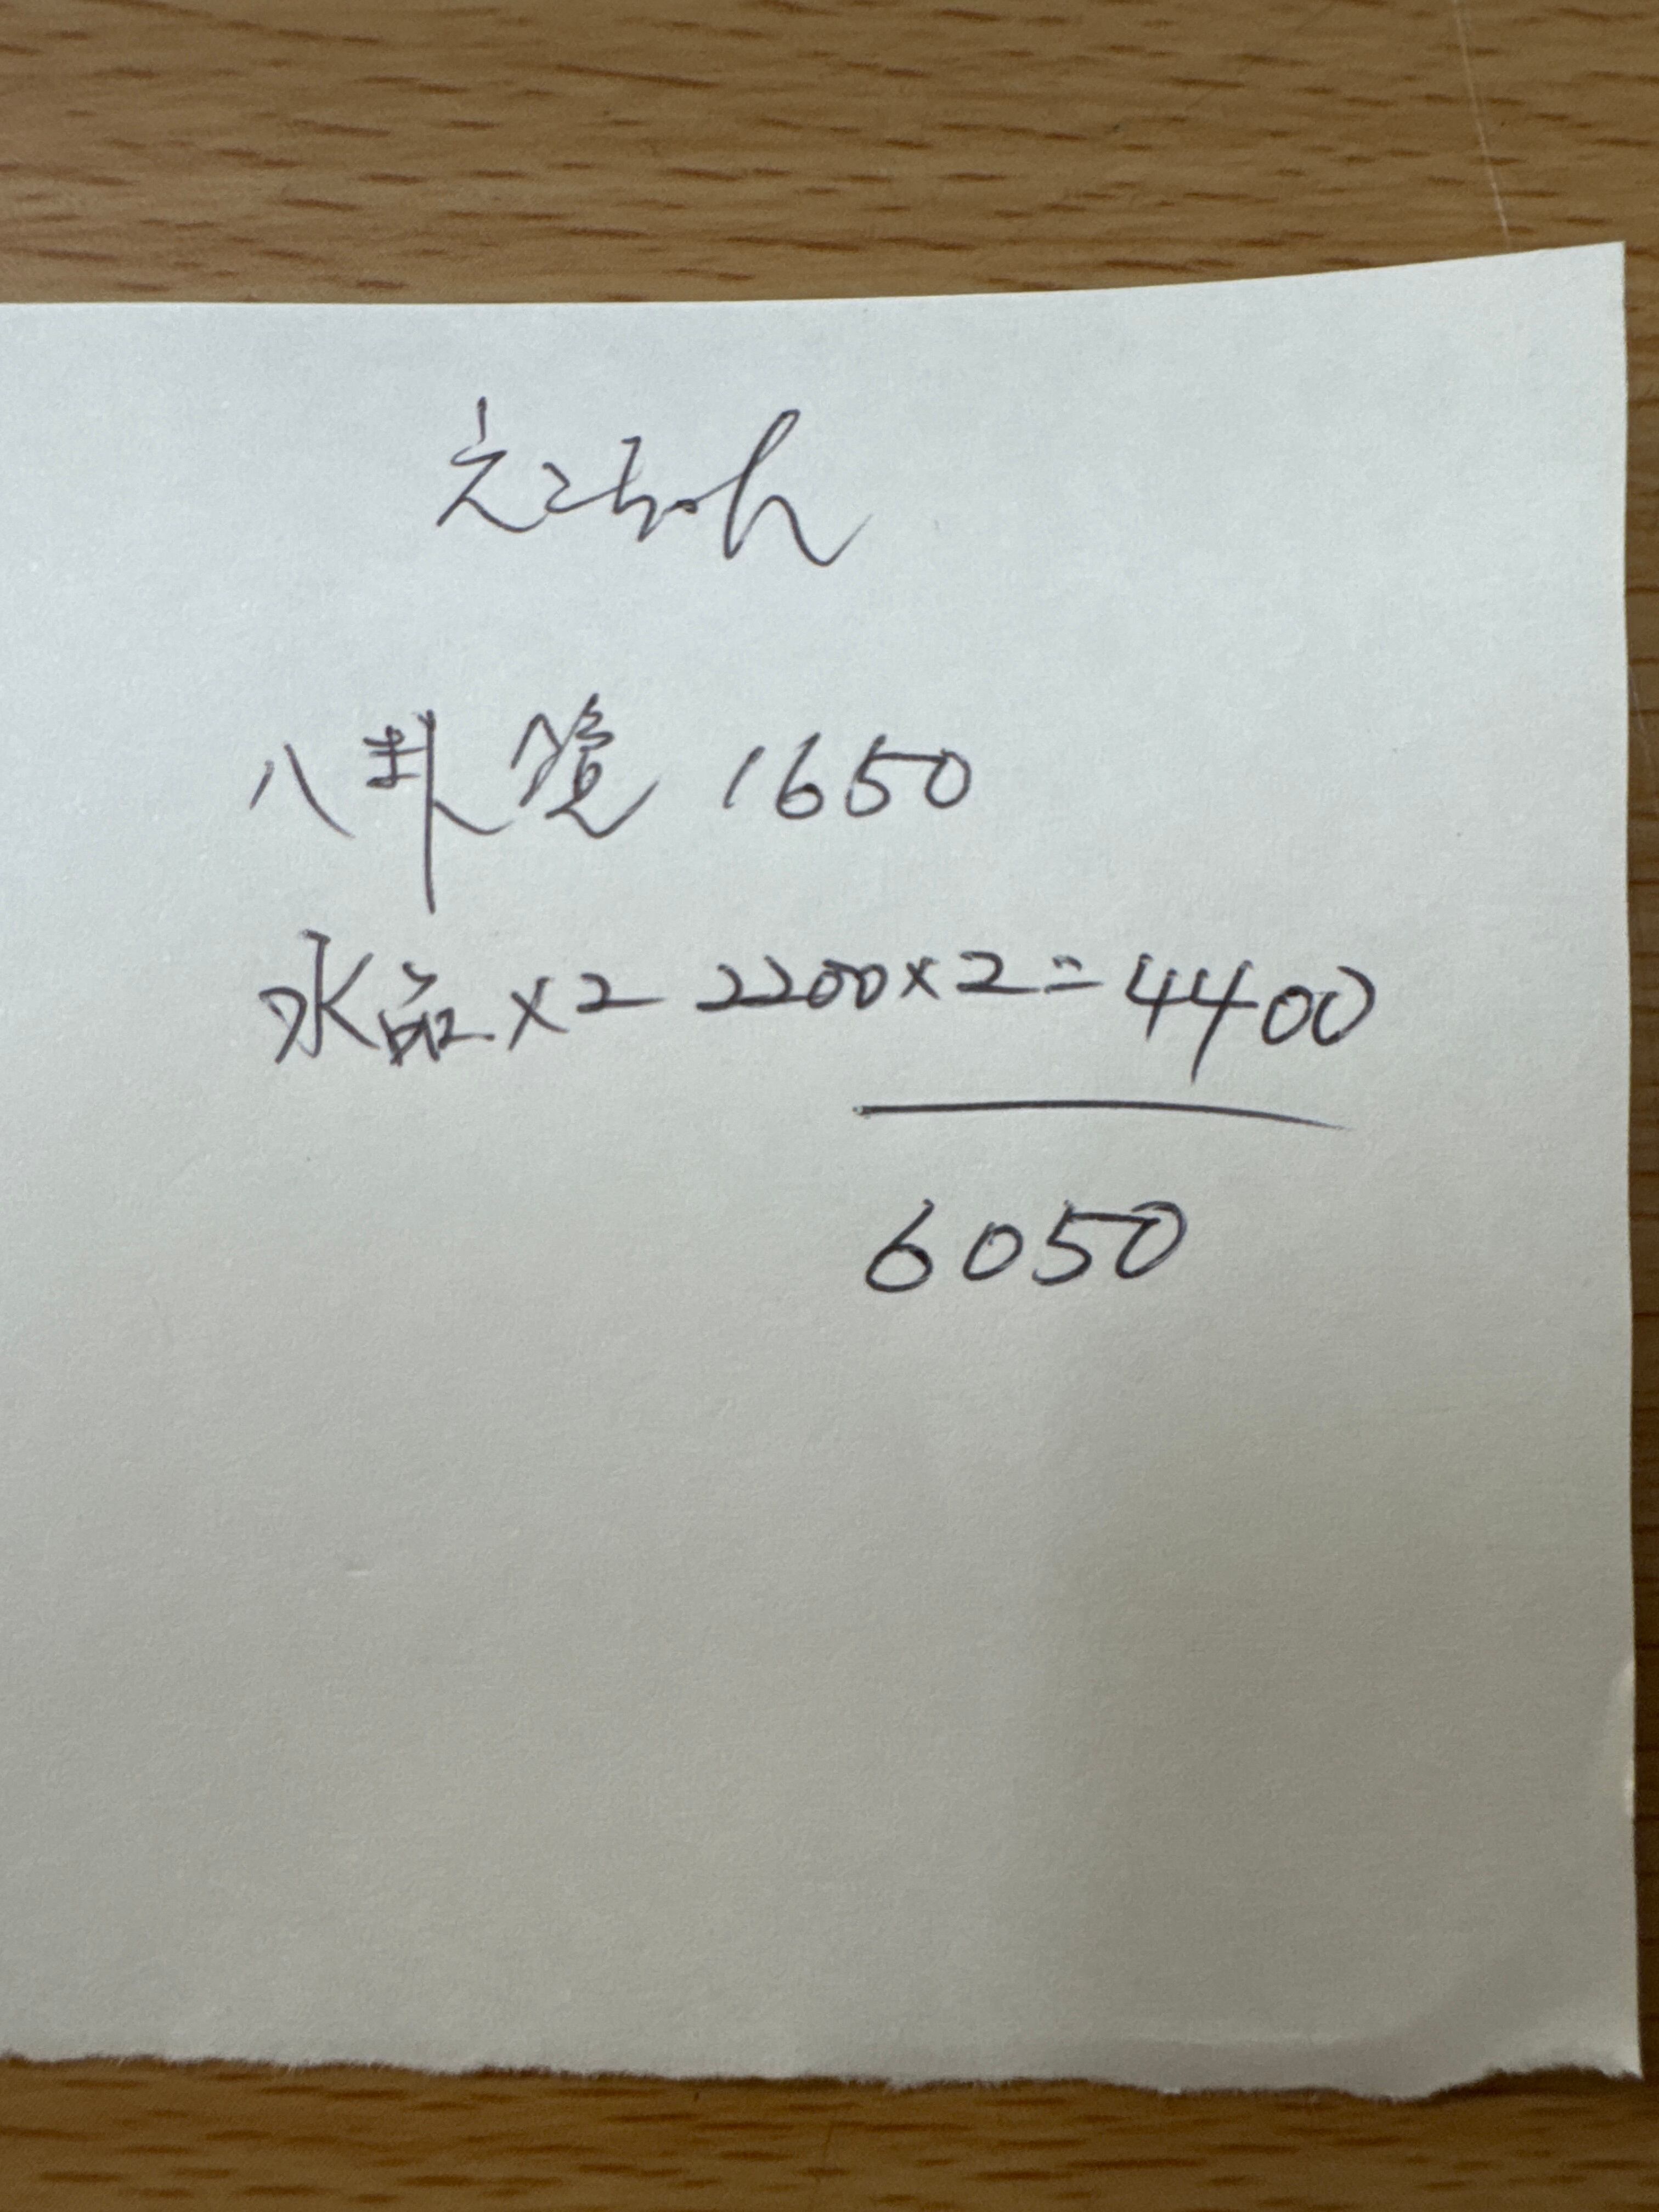 えこちゃん
八卦鏡 1650
水晶×2 2200×2=4400
6050